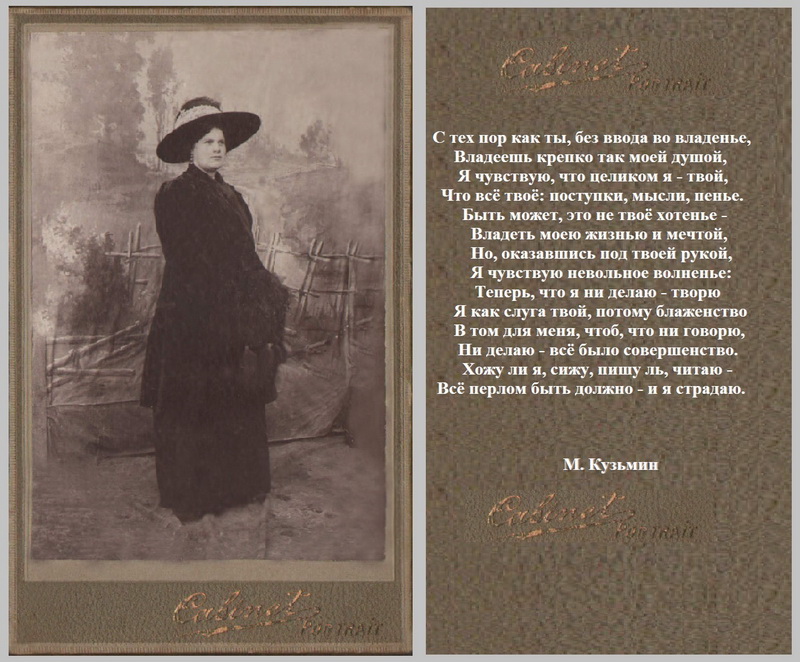 Cabinet
PORTRAIT
Cabinet
PORTRAIT
С тех пор как ты, без ввода во владенье,
Владеешь крепко так моей душой,
Я чувствую, что целиком я - твой,
Что всё твоё: поступки, мысли, пенье.
Быть может, это не твоё хотенье -
Владеть моею жизнью и мечтой,
Но, оказавшись под твоей рукой,
Я чувствую невольное волненье:
Теперь, что я ни делаю - творю
Я как слуга твой, потому блаженство
В том для меня, чтоб, что ни говорю,
Ни делаю - всё было совершенство.
Хожу ли я, сижу, пишу ль, читаю -
Всё перлом быть должно - и я страдаю.
М. Кузьмин
Cabinet
PORTRAIT